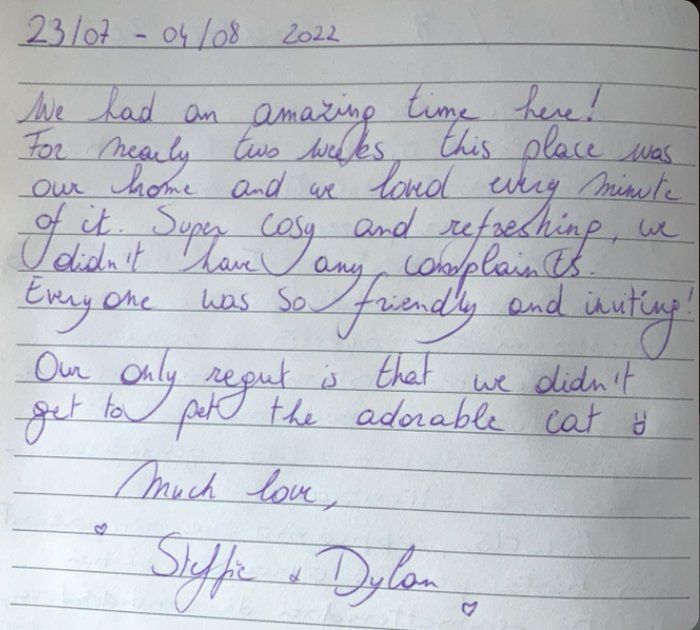 23/07 - 04/08 2022
We had an amazing time here!
For nearly two weeks this place was
our home and we loved every minute
of it. Super cosy and refreshing, we
didn't have any complaints.
Everyone was so friendly and inviting!
Our only regret is that we didn't
get to pet the adorable cat
Much love,
Steffie & Dylan